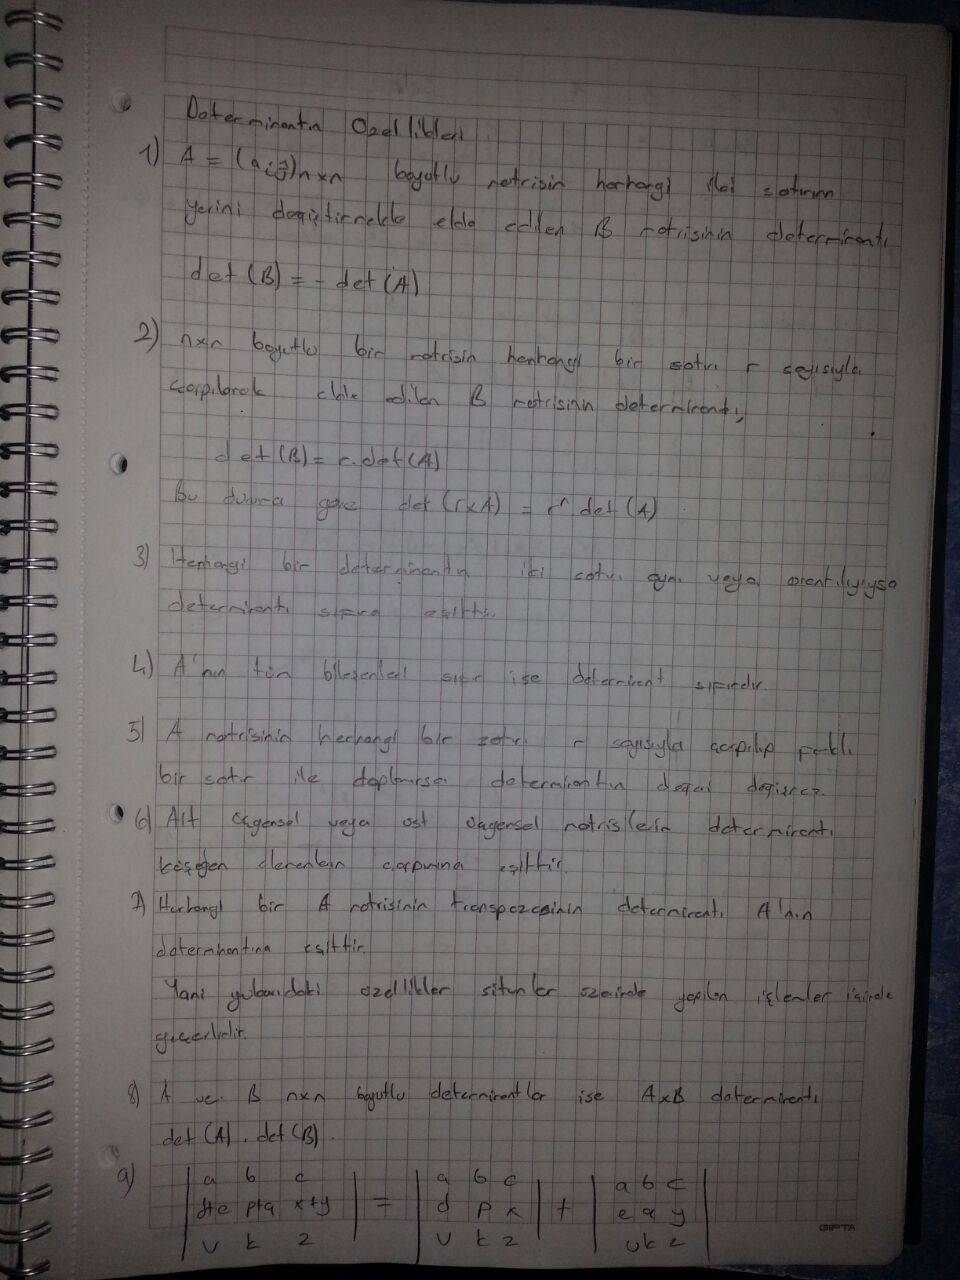 Determinantın Özellikleri
1) A = (aij)nxn boyutlu matrisin herhangi iki satırın
yerini değiştirmekle elde edilen B matrisinin determinantı
det (B) = - det (A)
2) nxn boyutlu bir matrisin herhangi bir satırı r sayısıyla
çarpılarak elde edilen B matrisinin determinantı,
det (B) = r.det(A)
Bu duruma göre det (rxA) = rⁿ det (A)
3) Herhangi bir determinantın iki satırı aynı veya orantılıysa
determinantı sıfıra eşittir.
4) A'nın tüm bileşenleri sıfır ise determinant sıfırdır.
5) A matrisinin herhangi bir satırı r sayısıyla çarpılıp farklı
bir satır ile toplanırsa determinantın değeri değişmez.
6) Alt üçgensel veya üst üçgensel matrislerin determinantı
köşegen elemanların çarpımına eşittir.
7) Herhangi bir A matrisinin transpozesinin determinantı A'nın
determinantına eşittir.
Yani yukarıdaki özellikler sütunlar üzerinde yapılan işlemler içinde
geçerlidir.
8) A ve B nxn boyutlu determinantlar ise AxB determinantı
det (A) . det (B)
9) | a b c | = | a b c | + | a b c |
| d+e p+q x+y | | d p x | | e q y |
| v k z | | v k z | | v k z |
GIPTA